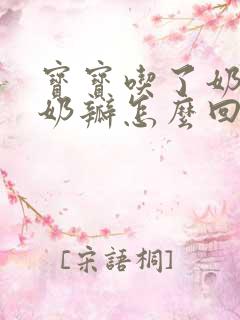 寶寶喫了奶
奶瓣怎麼回
[宋語桐]